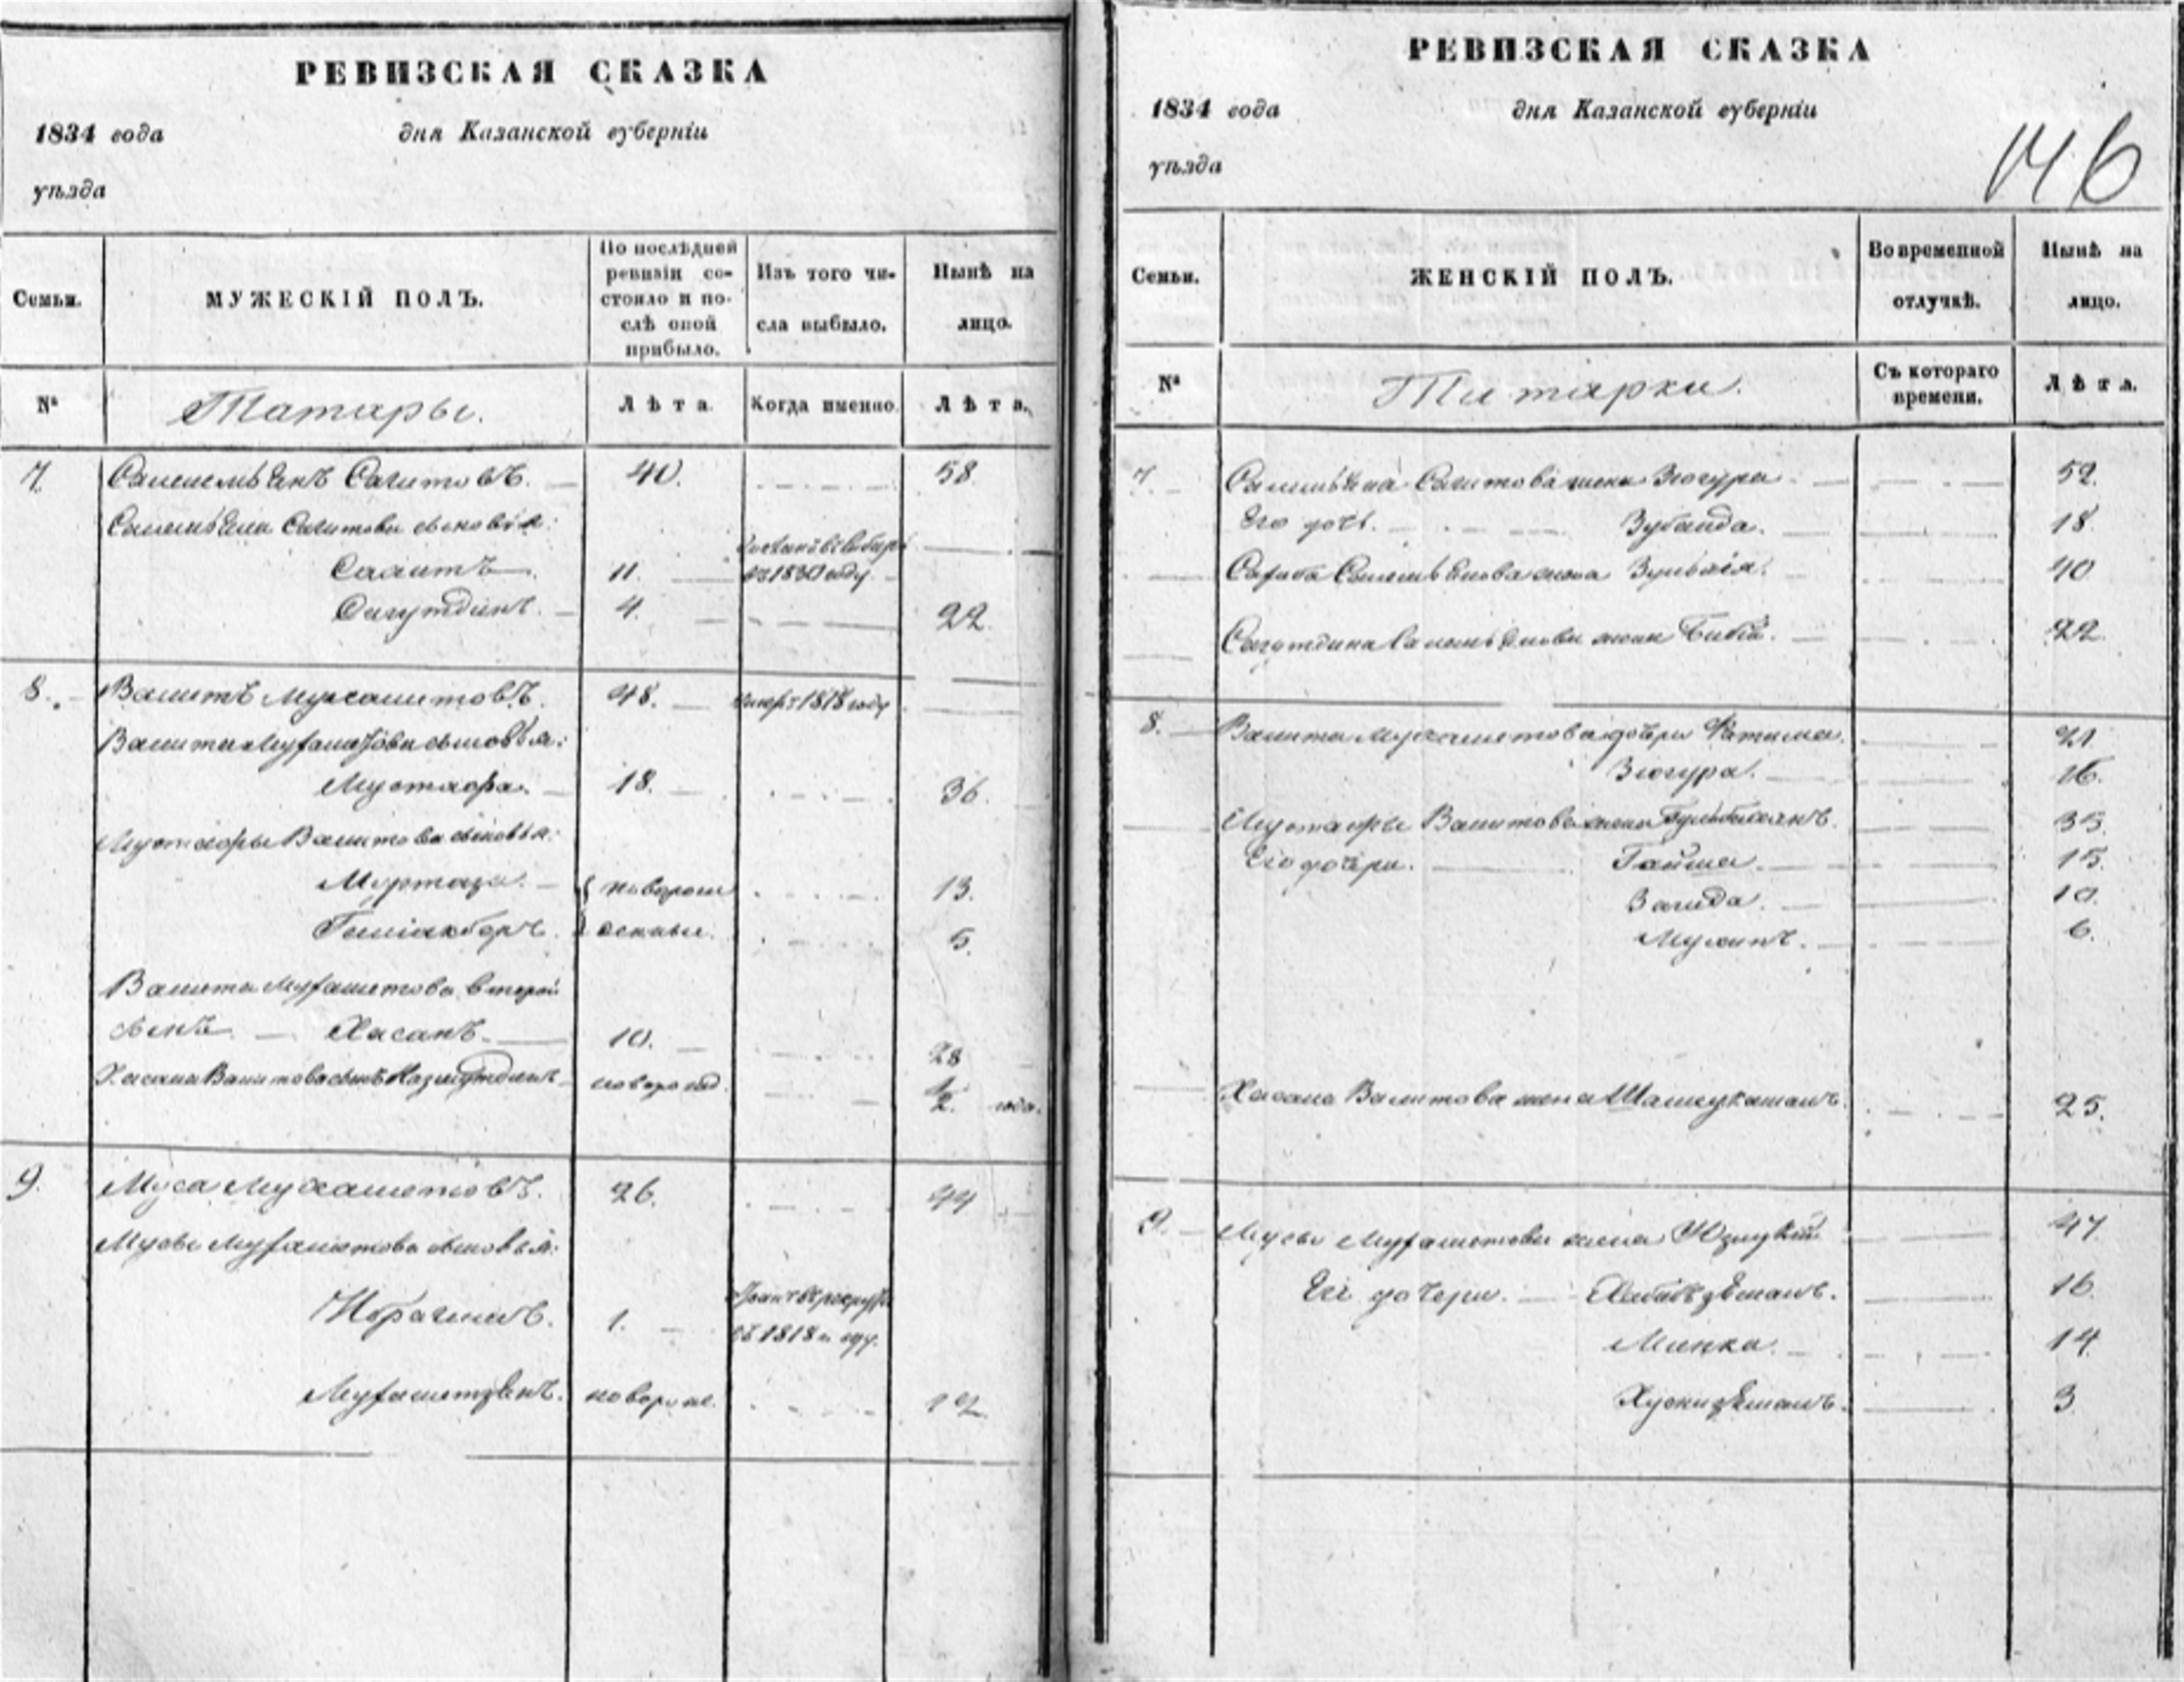 РЕВИЗСКАЯ СКАЗКА
1834 года дня Казанской губерніи
уѣзда
Семьи.
МУЖЕСКІЙ ПОЛЪ.
По послѣдней ревизіи состояло и послѣ оной прибыло.
Изъ того числа выбыло.
Нынѣ на лицо.
№ Татары. Лѣта. Когда именно. Лѣта.
7. Сагитовъ. 40. 58
Сагитова сыновья:
Саитъ 11. въ 1830 году
Сагутдинъ. 4. 22
8. Валитъ Мухаметовъ. 48. умеръ 1818 году
Валита Мухаметова сыновья:
Мустафа. 18. 36.
Мустафы Валитова сыновья:
Муртаза. новорож 13.
денные. 5.
Валита Мухаметова второй
сынъ Хасанъ 10. 28
Хасана Валитова сынъ Назмутдинъ новорожд. 1/2 года.
9. Муса Мухаметовъ. 26. 44
Мусы Мухаметова сыновья:
Ибрагимъ. 1. въ рекруты
въ 1818 м году.
Мухаметзянъ. новорож. 12
РЕВИЗСКАЯ СКАЗКА
1834 года дня Казанской губерніи
уѣзда
146
Семьи.
ЖЕНСКІЙ ПОЛЪ.
Во временной отлучкѣ.
Нынѣ на лицо.
№ Татарки. Съ котораго времени. Лѣта.
7. Сагитова жена Зюгура 52.
Его дочь. Зубаида. 18.
жена 40
Сагутдина жена Биби. 22
8. Валита Мухаметова дочери Фатима. 21
Зюгура. 16.
Мустафы Валитова жена 35.
Его дочери. Гайша. 15.
Загида. 10.
6.
Хасана Валитова жена 25.
9. Мусы Мухаметова жена 47
Его дочери. 16
14
3